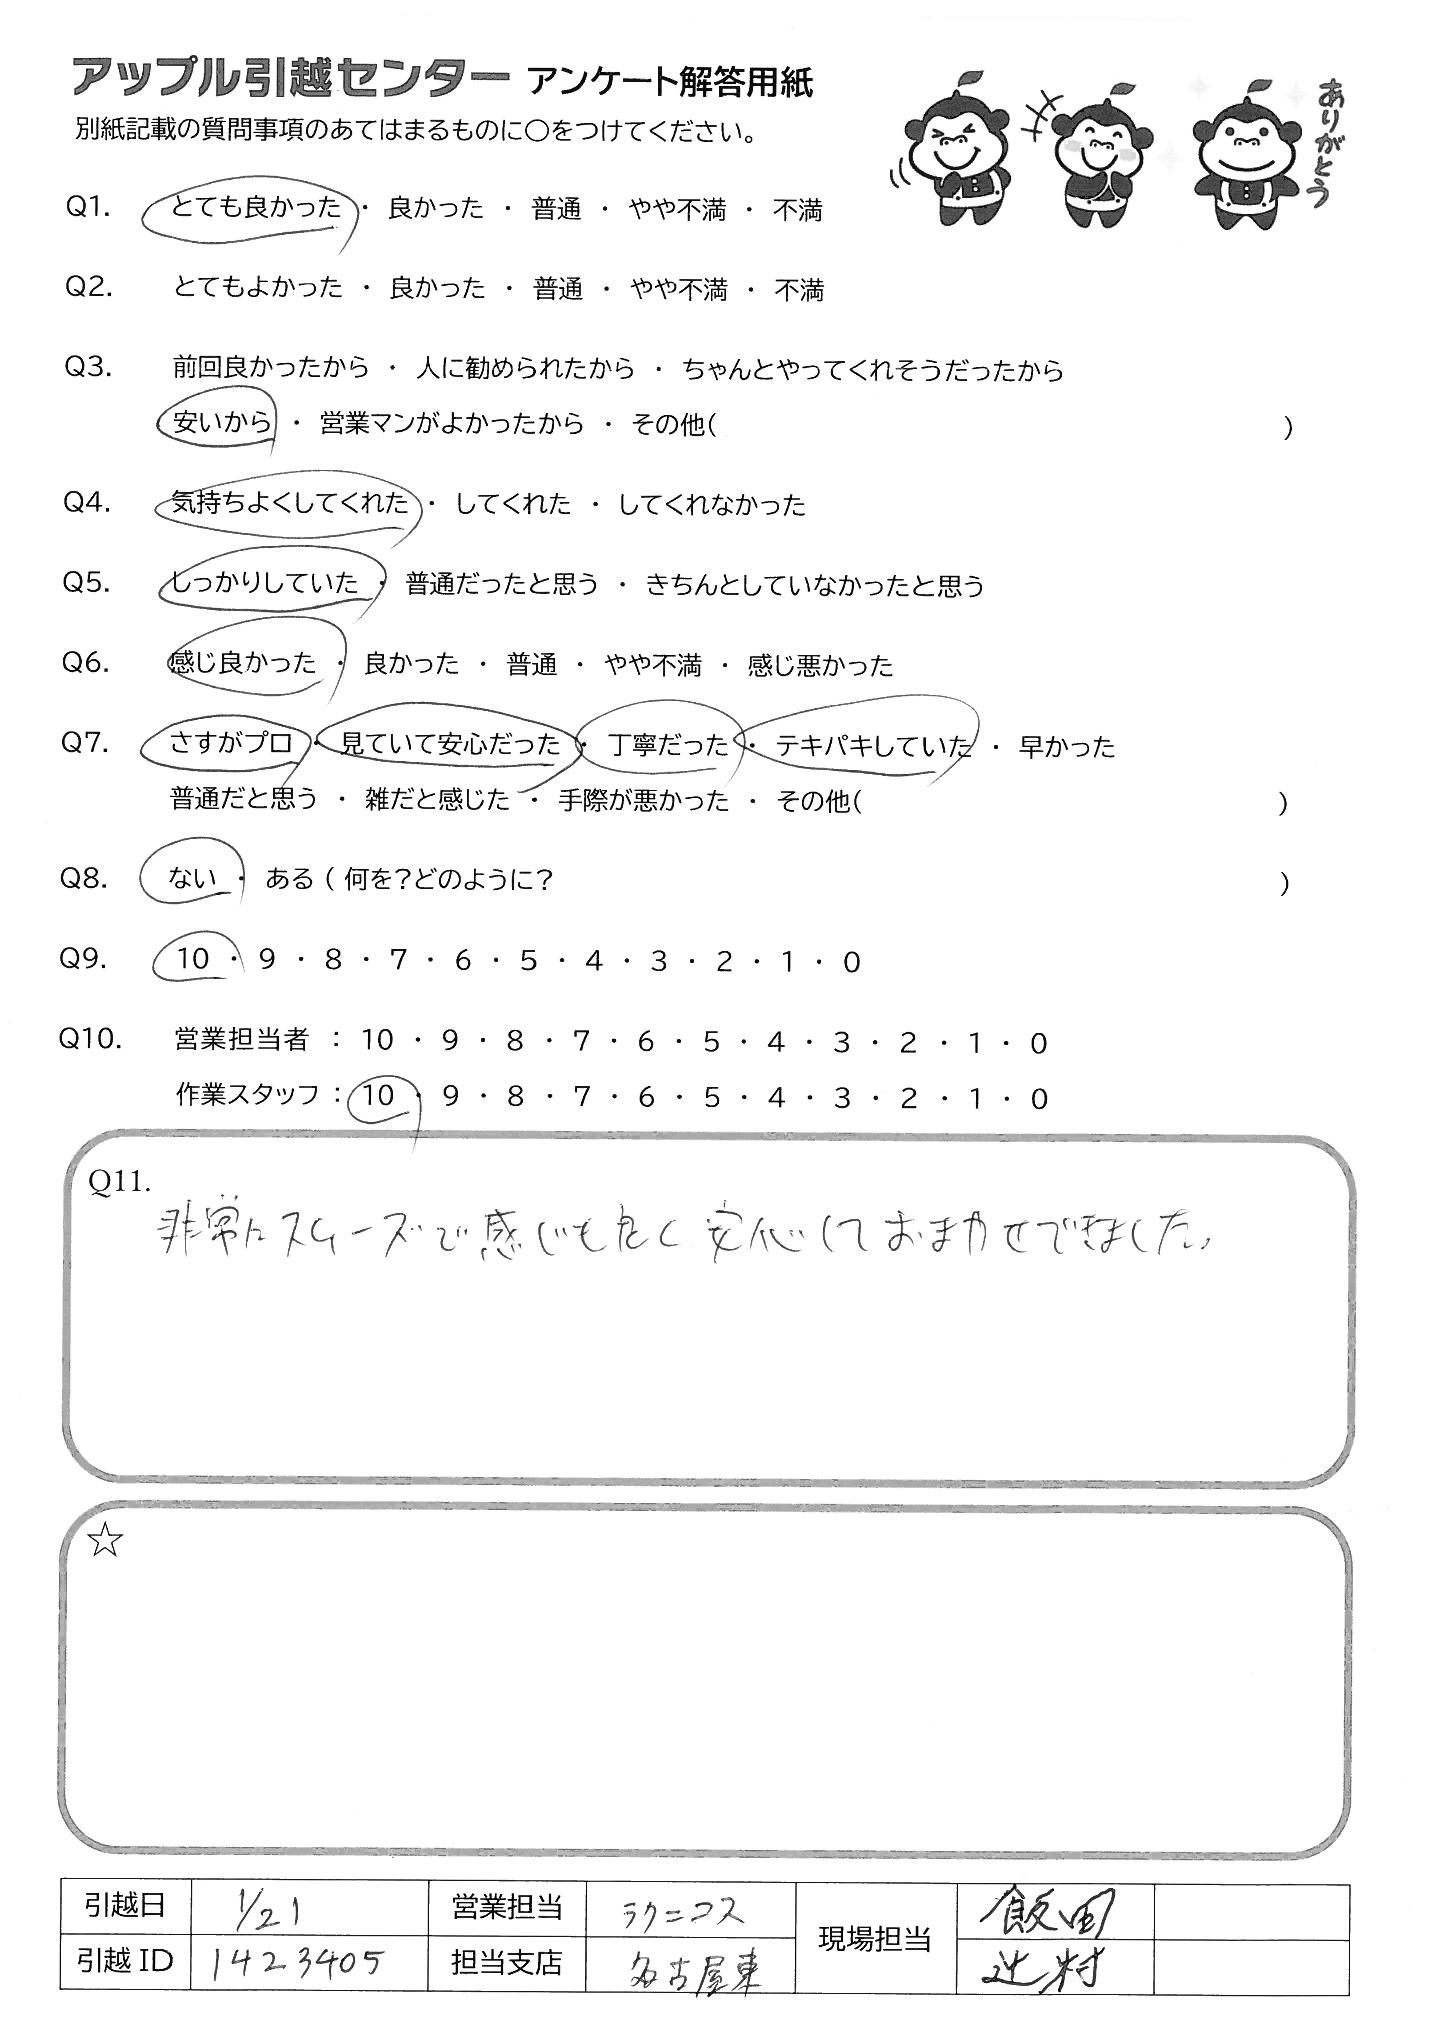 アップル引越センター アンケート解答用紙
別紙記載の質問事項のあてはまるものに○をつけてください。
ありがとう
Q1. とても良かった ・ 良かった ・ 普通 ・ やや不満 ・ 不満
Q2. とてもよかった ・ 良かった ・ 普通 ・ やや不満 ・ 不満
Q3. 前回良かったから ・ 人に勧められたから ・ ちゃんとやってくれそうだったから
安いから ・ 営業マンがよかったから ・ その他( )
Q4. 気持ちよくしてくれた ・ してくれた ・ してくれなかった
Q5. しっかりしていた ・ 普通だったと思う ・ きちんとしていなかったと思う
Q6. 感じ良かった ・ 良かった ・ 普通 ・ やや不満 ・ 感じ悪かった
Q7. さすがプロ ・ 見ていて安心だった ・ 丁寧だった ・ テキパキしていた ・ 早かった
普通だと思う ・ 雑だと感じた ・ 手際が悪かった ・ その他( )
Q8. ない ・ ある ( 何を?どのように? )
Q9. 10 ・ 9 ・ 8 ・ 7 ・ 6 ・ 5 ・ 4 ・ 3 ・ 2 ・ 1 ・ 0
Q10. 営業担当者 : 10 ・ 9 ・ 8 ・ 7 ・ 6 ・ 5 ・ 4 ・ 3 ・ 2 ・ 1 ・ 0
作業スタッフ : 10 ・ 9 ・ 8 ・ 7 ・ 6 ・ 5 ・ 4 ・ 3 ・ 2 ・ 1 ・ 0
Q11.
非常にスムーズで感じも良く安心しておまかせできました。
☆
引越日 1/21 営業担当 ラクニコス 現場担当 飯田
引越ID 1423405 担当支店 名古屋東 辻村